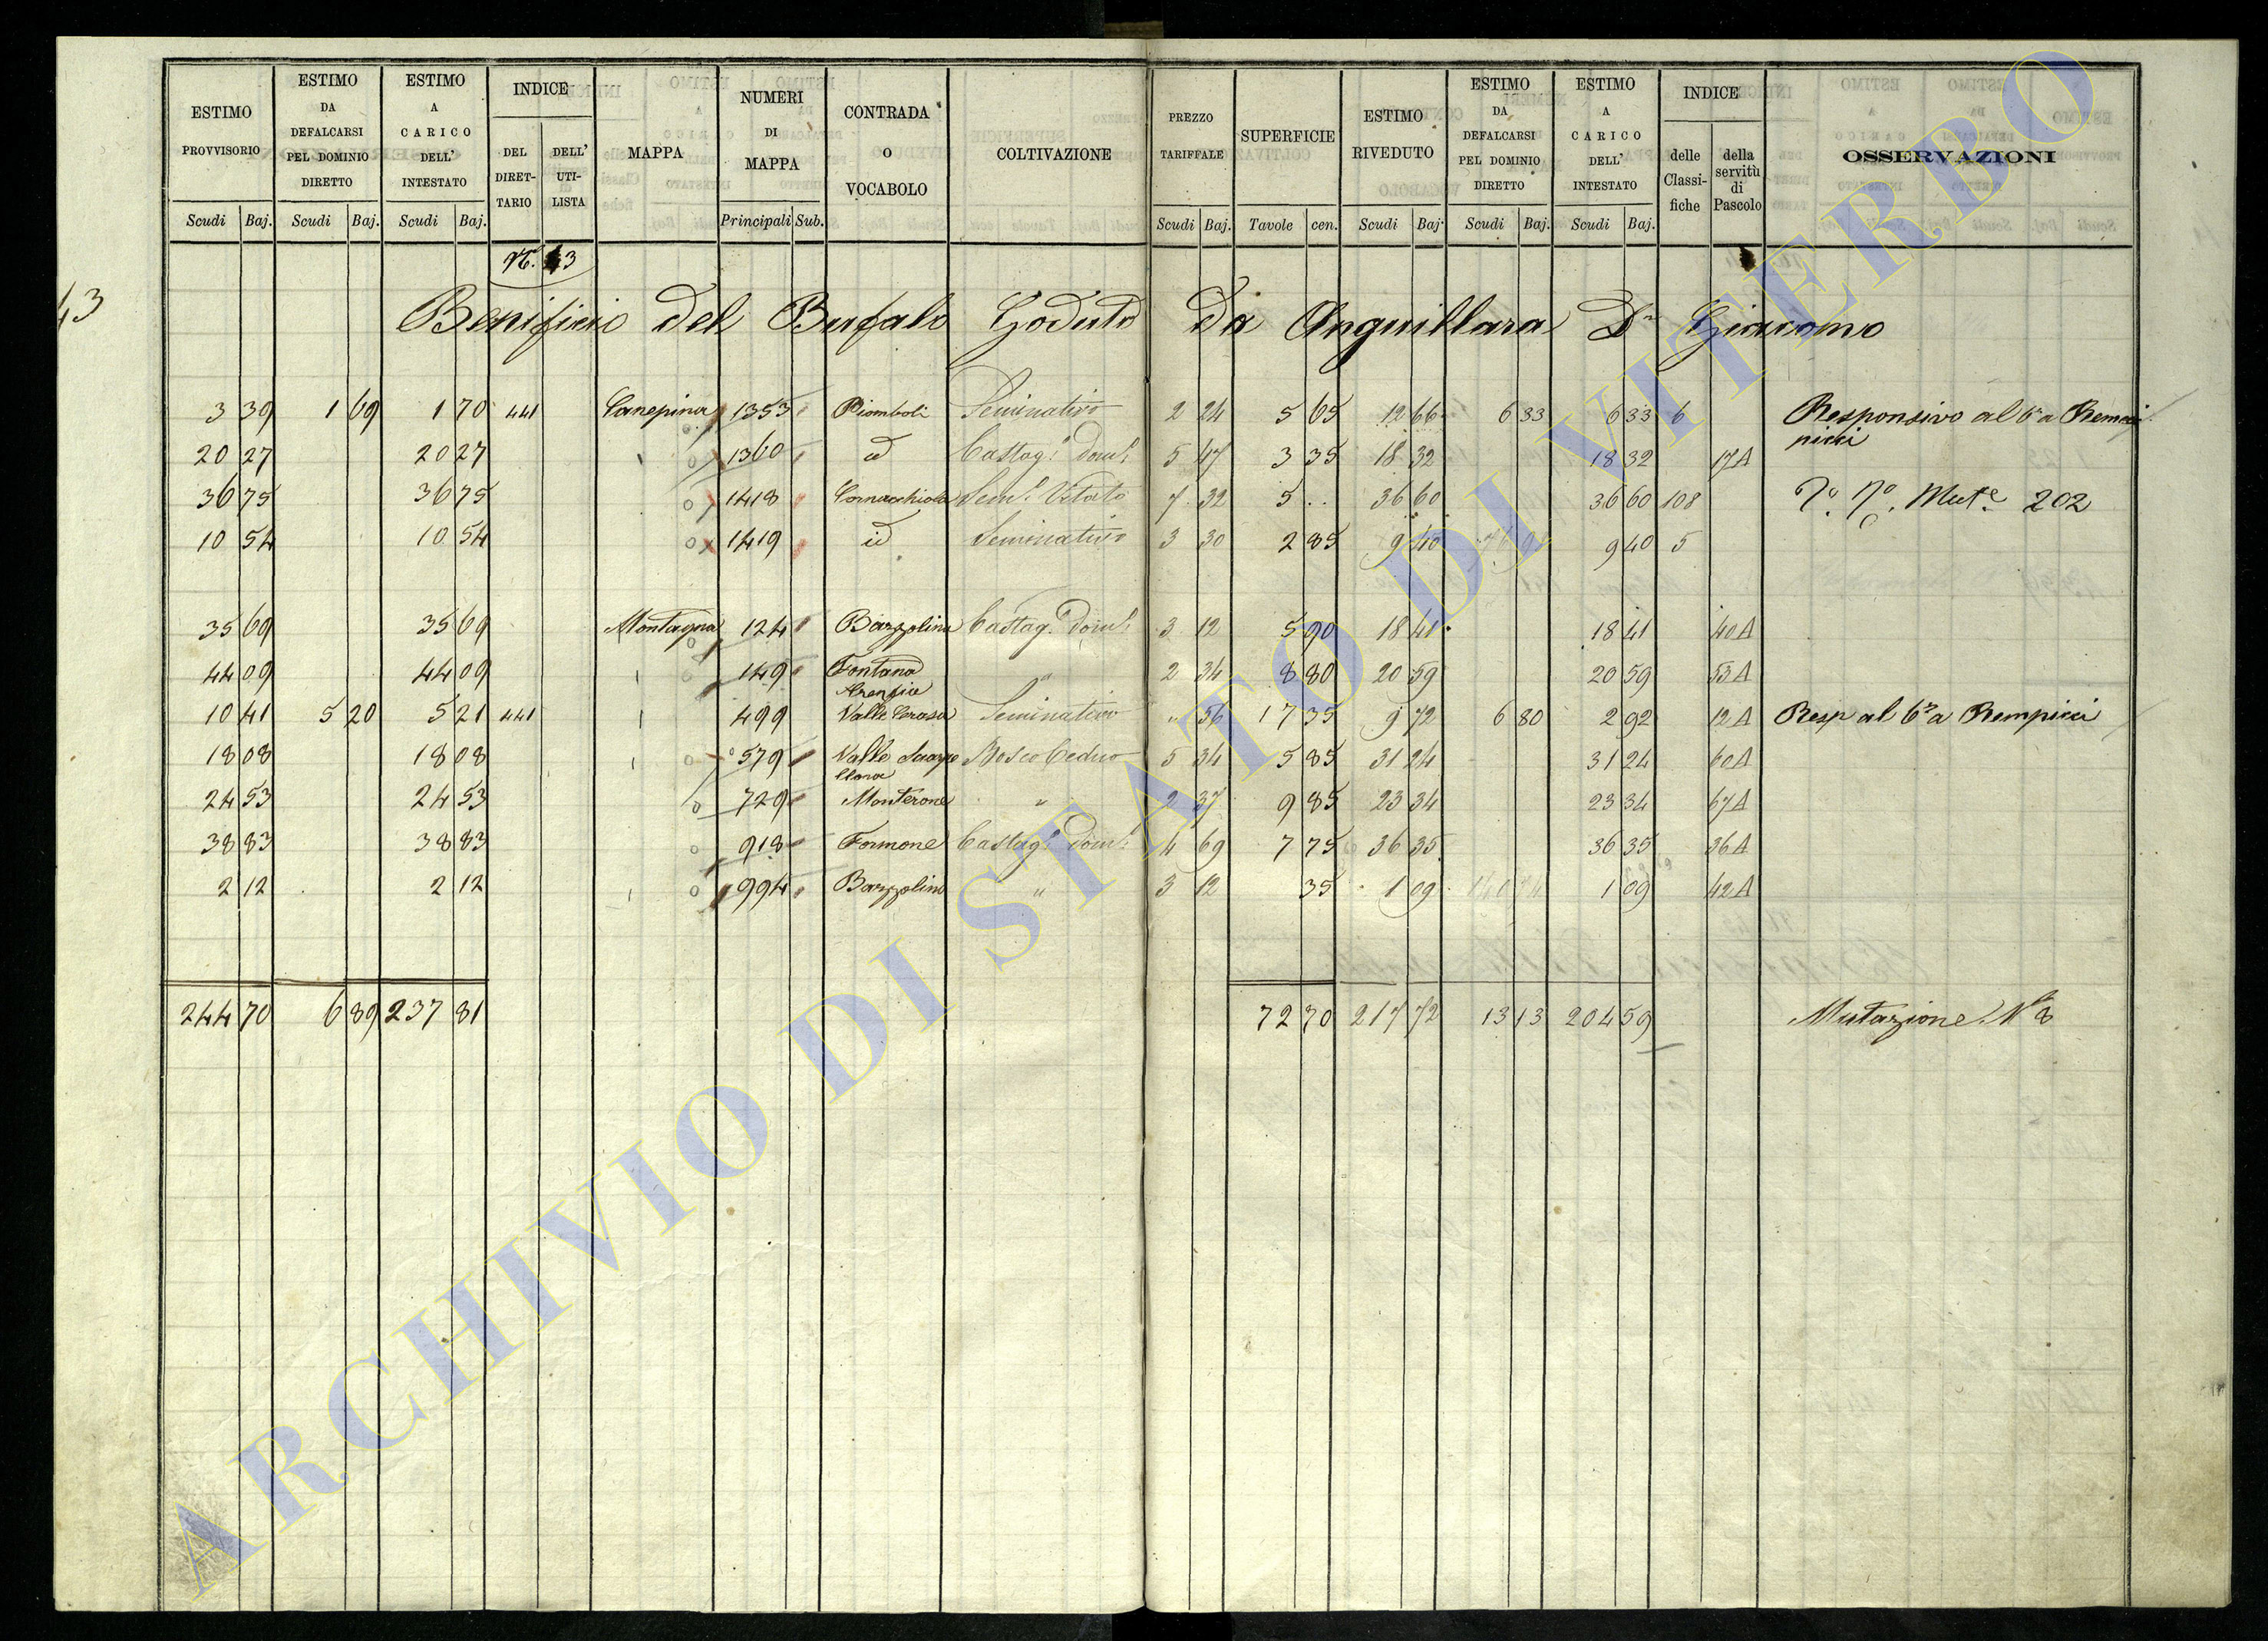 ESTIMO PROVVISORIO Scudi Baj.
ESTIMO DA DEFALCARSI PEL DOMINIO DIRETTO Scudi Baj.
ESTIMO A CARICO DELL' INTESTATO Scudi Baj.
INDICE DEL DIRET- TARIO DELL' UTI- LISTA
MAPPA
NUMERI DI MAPPA Principali Sub.
CONTRADA O VOCABOLO
COLTIVAZIONE
PREZZO TARIFFALE Scudi Baj.
SUPERFICIE Tavole cen.
ESTIMO RIVEDUTO Scudi Baj.
ESTIMO DA DEFALCARSI PEL DOMINIO DIRETTO Scudi Baj.
ESTIMO A CARICO DELL' INTESTATO Scudi Baj.
INDICE delle Classi- fiche della servitù di Pascolo
OSSERVAZIONI
43
Benificio del Bufalo Goduto Da Anguillara Dn Giacomo
3 39 1 69 1 70 441 Canepina 1353 Piomboli Seminativo 2 24 5 65 12 66 6 33 6 33 6 Responsivo al 6o a Rempi
picci
20 27 20 27 1360 id Castag.o Dom.o 5 47 3 35 18 32 18 32 17A
36 75 36 75 1418 Cornacchiola Sem.o Vitato 7 32 5 .. 36 60 36 60 108 Mut.e 202
10 54 10 54 1419 id Seminativo 3 30 2 85 9 40 9 40 5
35 69 35 69 Montagna 124 Bazzolina Castag.o Dom.o 3 12 5 90 18 41 18 41 40A
44 09 44 09 149 Fontana " 2 34 8 80 20 59 20 59 53A
10 41 5 20 5 21 441 499 Valle Cerasa Seminativo " 56 17 35 9 72 6 80 2 92 12A Resp al 6o a Rempicci
18 08 18 08 579 Valle Bosco Ceduo 5 34 5 85 31 24 31 24 60A
24 53 24 53 729 Monterone " 2 37 9 85 23 34 23 34 67A
38 83 38 83 918 Formone Castag.o Dom.o 4 69 7 75 36 35 36 35 36A
2 12 2 12 994 Bazzolina " 3 12 35 1 09 1 09 42A
244 70 6 89 237 81 72 70 217 72 13 13 204 59 Mutazione N 8
ARCHIVIO DI STATO DI VITERBO